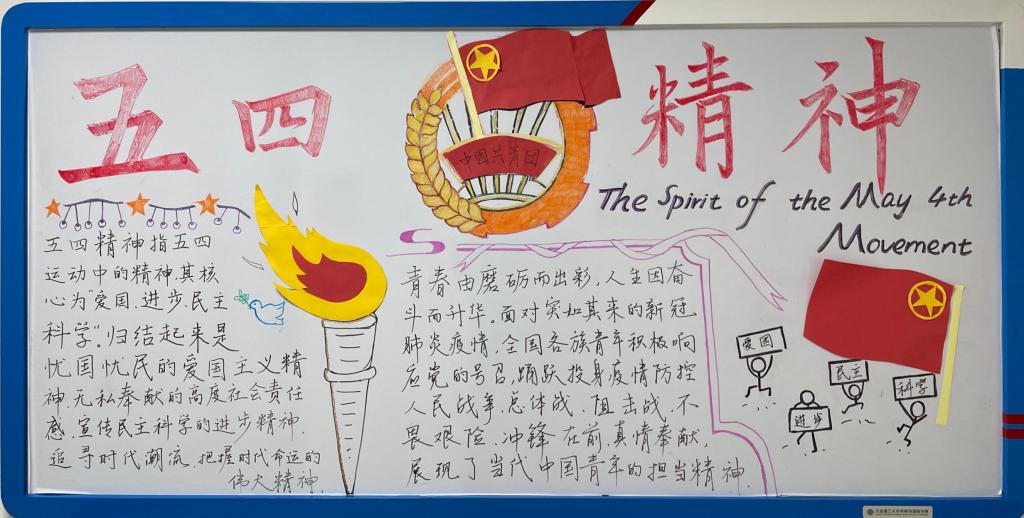 五四 精神
中国共青团
The Spirit of the May 4th
Movement
五四精神指五四
运动中的精神,其核
心为“爱国.进步.民主
科学”.归结起来是
忧国忧民的爱国主义精
神.无私奉献的高度社会责任
感.宣传民主科学的进步精神.
追寻时代潮流.把握时代命运的
伟大精神.
青春由磨砺而出彩,人生因奋
斗而升华。面对突如其来的新冠
肺炎疫情,全国各族青年积极响
应党的号召,踊跃投身疫情防控
人民战争.总体战.阻击战,不
畏艰险.冲锋在前,真情奉献,
展现了当代中国青年的担当精神.
爱国
民主
科学
进步